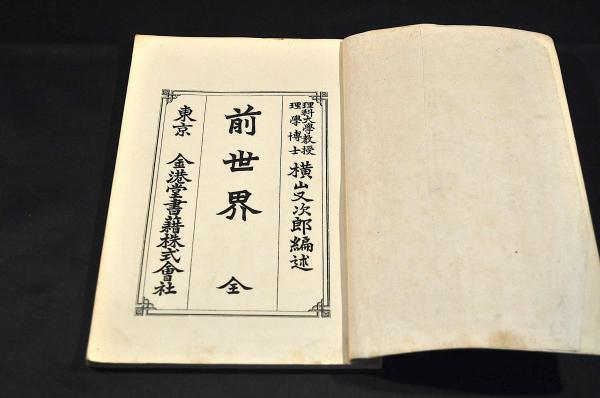 理科大學教授
理學博士
横山又次郎編述
前世界 全
東京 金港堂書籍株式會社